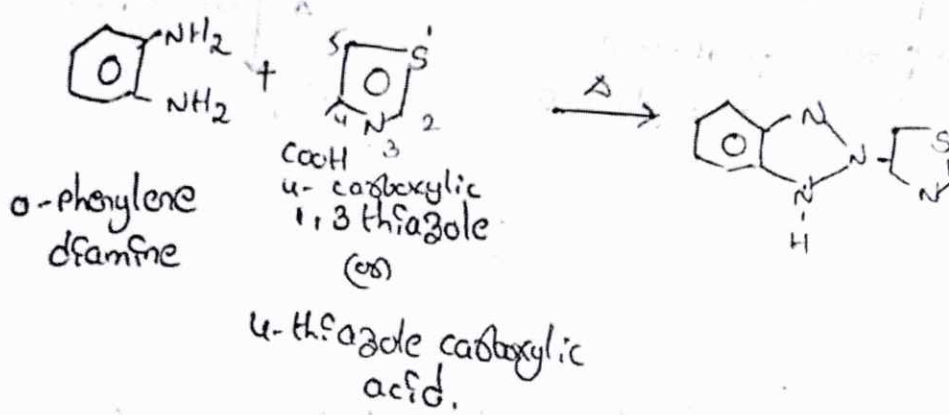 NH2
NH2
+
5
S
1
4
N
3
2
COOH
Δ
N
N
N
H
S
N
o-phenylene
diamine
4-carboxylic
1,3 thiazole
(or)
4-thiazole carboxylic
acid.